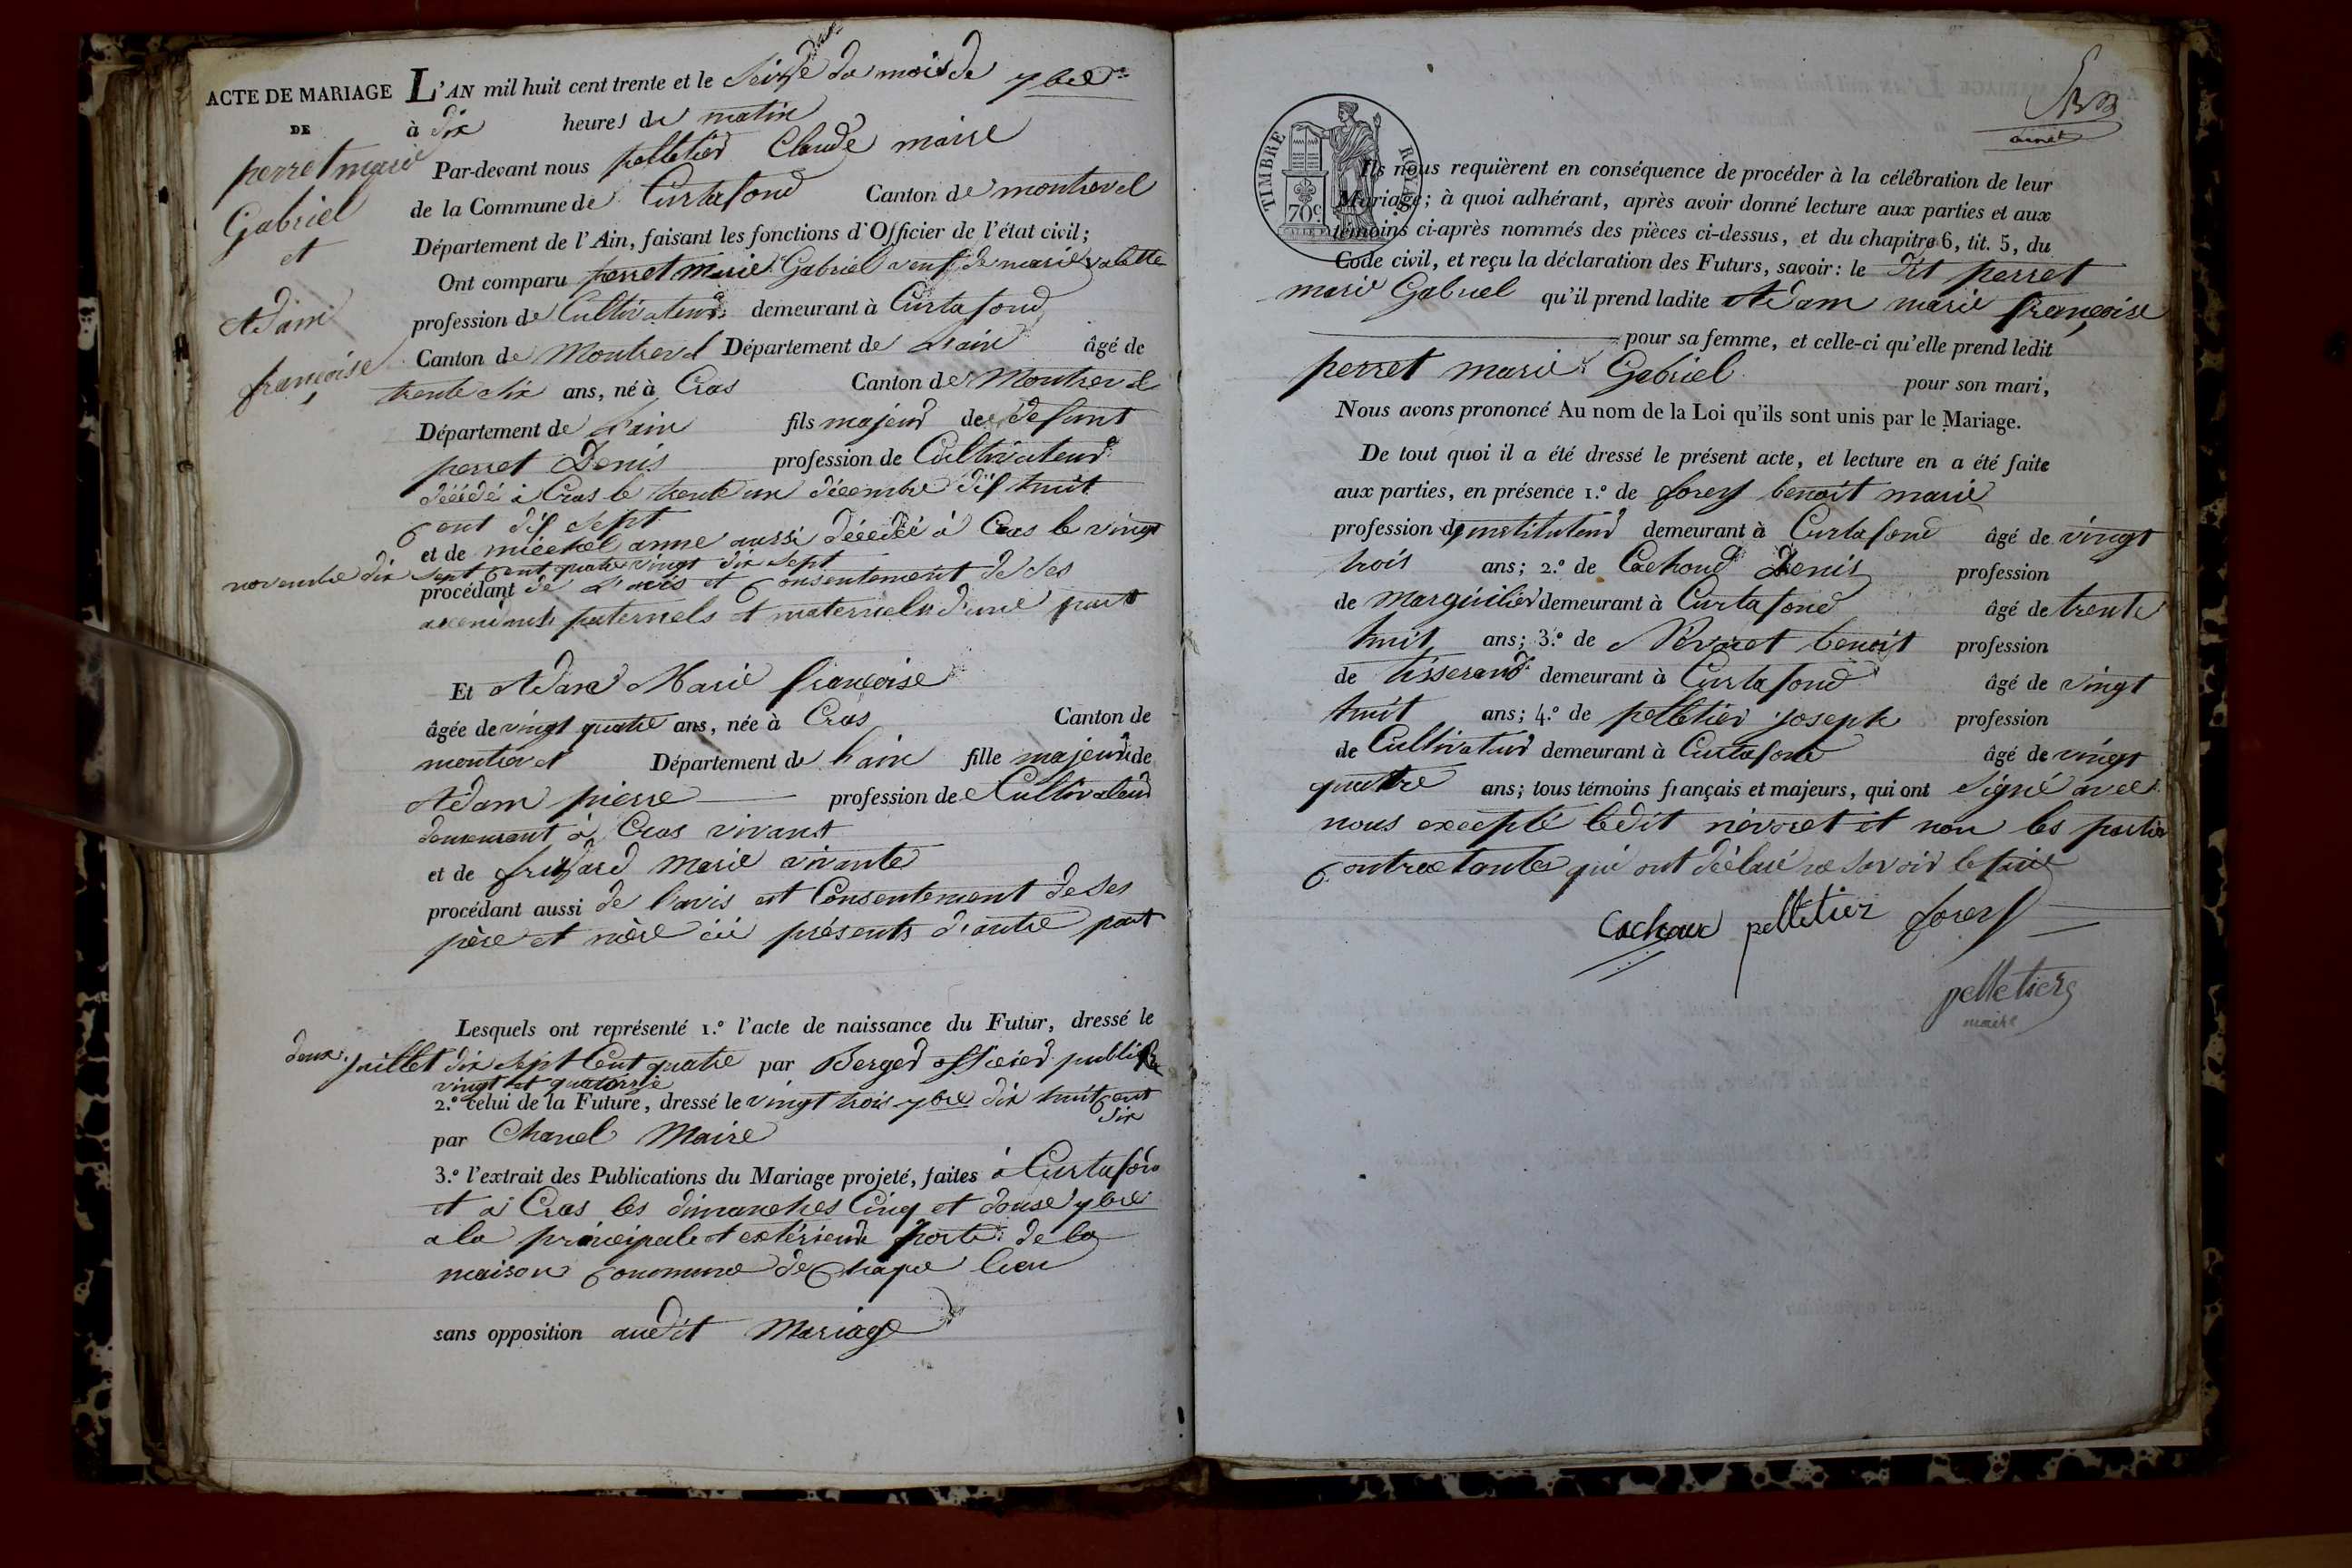 ACTE DE MARIAGE
DE
perret marie
Gabriel
et
Adam
françoise
L'AN mil huit cent trente et le Seize du mois de 7bre
à dix heures du matin
Par-devant nous pelletier Claude maire
de la Commune de Curtafond Canton de montrevel
Département de l'Ain, faisant les fonctions d'Officier de l'état civil;
Ont comparu perret marie Gabriel veuf de marie valette
profession de Cultivateur demeurant à Curtafond
Canton de Montrevel Département de Lain âgé de
trente six ans, né à Cras Canton de Montrevel
Département de Lain fils majeur de defunt
perret Denis profession de Cultivateur
décédé à Cras le trente un décembre dix huit
Cent dix sept
et de miechel anne aussi décédée à Cras le vingt
novembre dix sept Cent quatre vingt dix sept
procédant de Lavis et Consentement de ses
ascendants paternels et maternels d'une part
Et Adam Marie françoise
âgée de vingt quatre ans, née à Cras Canton de
montrevel Département de Lain fille majeure de
Adam pierre profession de Cultivateur
demeurant à Cras vivant
et de marie vivante
procédant aussi de Lavis et Consentement de ses
père et mère ici présents d'autre part
Lesquels ont représenté 1.º l'acte de naissance du Futur, dressé le
deux juillet dix sept Cent quatre par Berger officier public
vingt et quatorze
2.º celui de la Future, dressé le vingt trois 7bre dix huit Cent
six
par Chanel Maire
3.º l'extrait des Publications du Mariage projeté, faites à Curtafond
et à Cras les dimanches Cinq et douse 7bre
a la principale et extérieure porte de la
maison Commune de Chaque lieu
sans opposition audit Mariage
TIMBRE ROYAL
70c
Ils nous requièrent en conséquence de procéder à la célébration de leur
Mariage; à quoi adhérant, après avoir donné lecture aux parties et aux
témoins ci-après nommés des pièces ci-dessus, et du chapitre 6, tit. 5, du
Code civil, et reçu la déclaration des Futurs, savoir: le dit perret
marie Gabriel qu'il prend ladite Adam marie françoise
pour sa femme, et celle-ci qu'elle prend ledit
perret marie Gabriel pour son mari,
Nous avons prononcé Au nom de la Loi qu'ils sont unis par le Mariage.
De tout quoi il a été dressé le présent acte, et lecture en a été faite
aux parties, en présence 1.º de forey benoit marie
profession d'instituteur demeurant à Curtafond âgé de vingt
trois ans; 2.º de Cachoud Denis profession
de marguilier demeurant à Curtafond âgé de trente
huit ans; 3.º de Névoret benoit profession
de tisserand demeurant à Curtafond âgé de vingt
huit ans; 4.º de pelletier joseph profession
de Cultivateur demeurant à Curtafond âgé de vingt
quatre ans; tous témoins français et majeurs, qui ont signé avec
nous excepté ledit névoret et non les parties
Contractantes qui ont déclaré ne savoir le faire
Cachoux pelletier forey
pelletier
maire